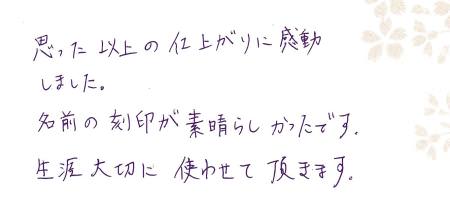 思った以上の仕上がりに感動
しました。
名前の刻印が素晴らしかったです。
生涯大切に使わせて頂きます。